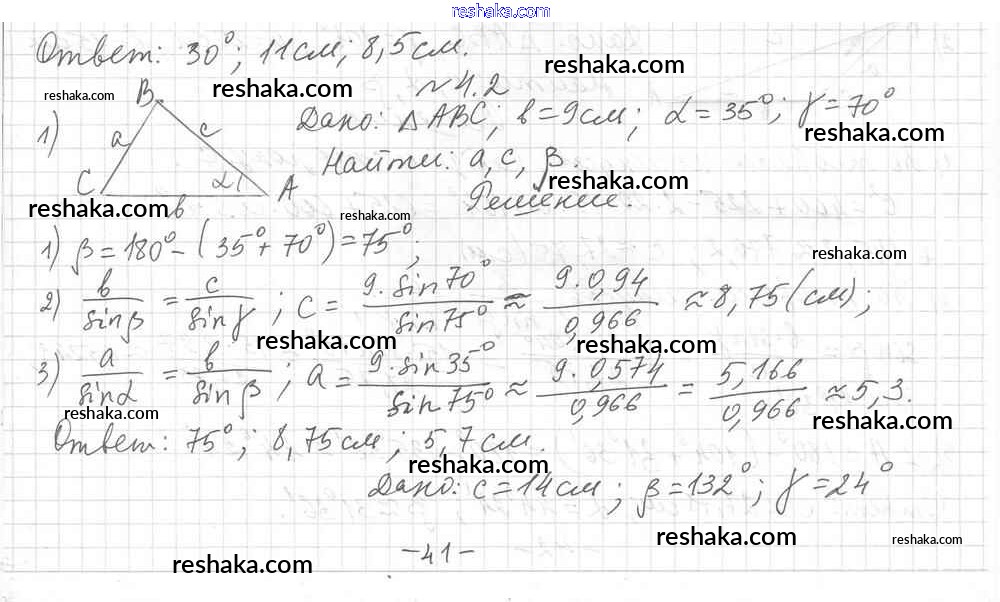 reshaka.com
Ответ: 30°; 11 см; 8,5 см.
reshaka.com
reshaka.com
reshaka.com
№ 4.2
1)
B
a
c
C
α
A
b
Дано: △ABC; b = 9 см; α = 35°; γ = 70°
reshaka.com
Найти: a, c, β.
reshaka.com
Решение.
reshaka.com
reshaka.com
1) β = 180° - (35° + 70°) = 75°;
reshaka.com
2) b/sinβ = c/sinγ; c = 9·sin70°/sin75° ≈ 9·0,94/0,966 ≈ 8,75 (см);
reshaka.com
reshaka.com
3) a/sinα = b/sinβ; a = 9·sin35°/sin75° ≈ 9·0,574/0,966 = 5,166/0,966 ≈ 5,3.
reshaka.com
reshaka.com
Ответ: 75°; 8,75 см; 5,7 см.
reshaka.com
Дано: c = 14 см; β = 132°; γ = 24°
reshaka.com
reshaka.com
-41-
reshaka.com